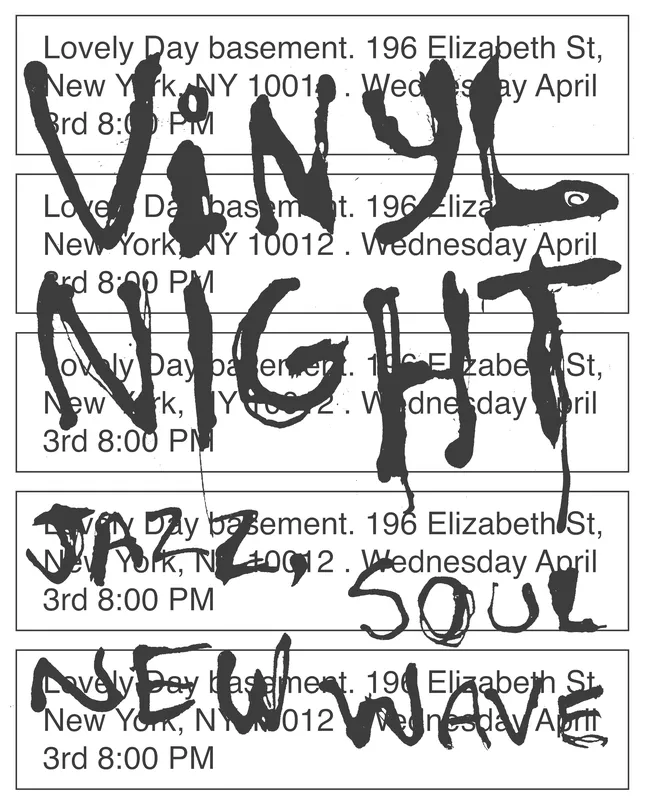 Lovely Day basement. 196 Elizabeth St,
New York, NY 10012 . Wednesday April
3rd 8:00 PM
ViNYL
Lovely Day basement. 196 Elizabeth St,
New York, NY 10012 . Wednesday April
3rd 8:00 PM
NIGHT
Lovely Day basement. 196 Elizabeth St,
New York, NY 10012 . Wednesday April
3rd 8:00 PM
Lovely Day basement. 196 Elizabeth St,
New York, NY 10012 . Wednesday April
3rd 8:00 PM
JAZZ,
SOUL
Lovely Day basement. 196 Elizabeth St,
New York, NY 10012 . Wednesday April
3rd 8:00 PM
NEW WAVE